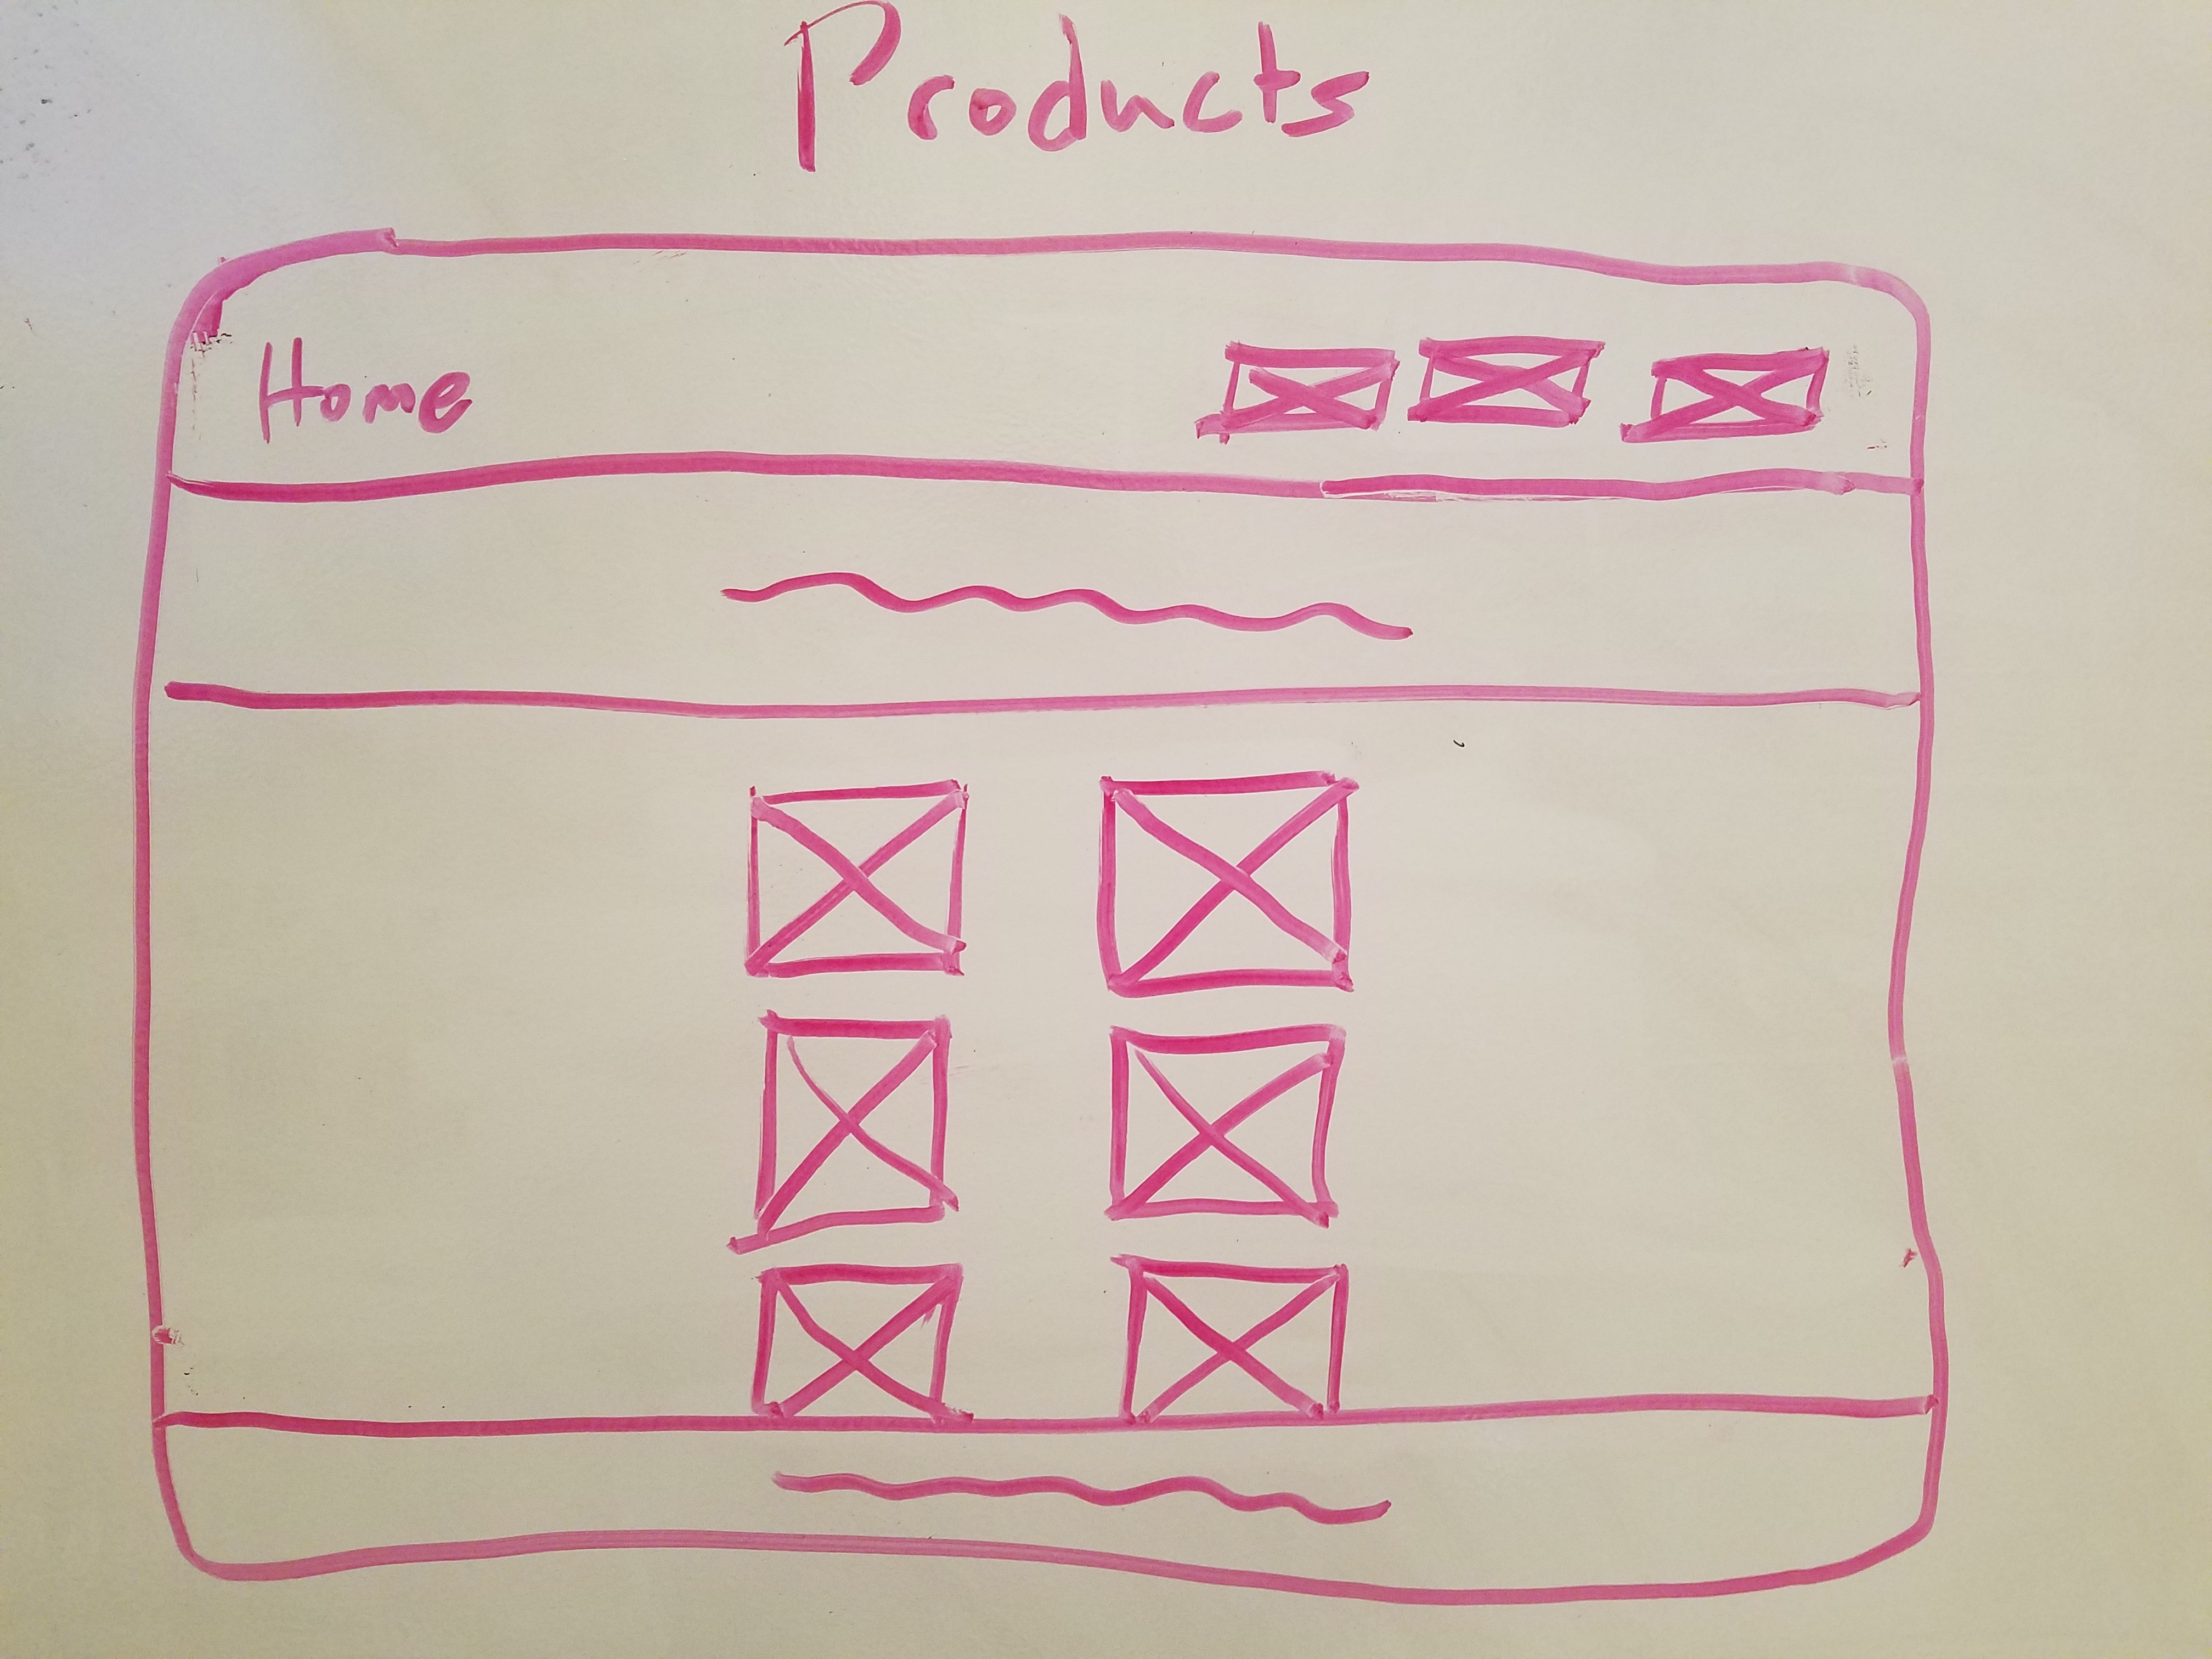 Products
Home